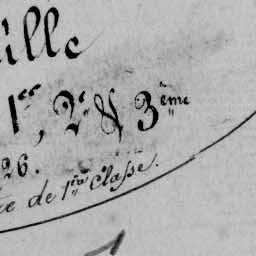 ille
1er, 2e & 3ème
26.
re de 1ère Classe.